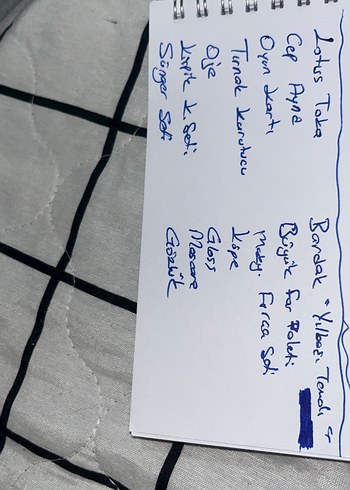 Lotus Toka
Cep Ayna
Oyun Kartı
Tırnak Kurutucu
Oje
Kirpik K. Seti
Sünger Seti
Bardak • Yılbaşı Temalı
Büyük Far Paleti
Makyj Fırça Seti
Küpe
Gloss
Mascara
Gözlük